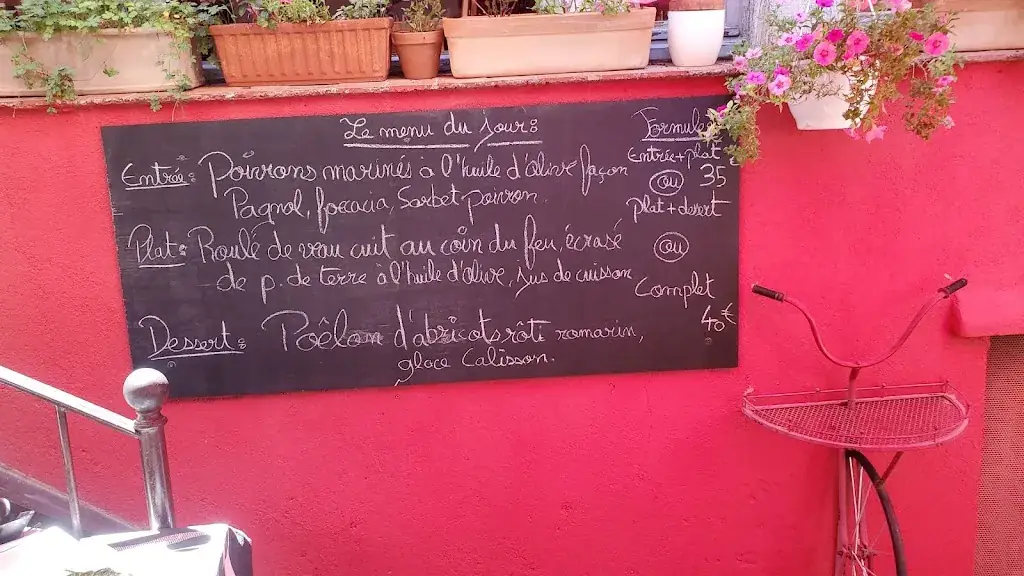 Le menu du Jour:
Entrée: Poivrons marinés à l'huile d'olive façon
Pagnol, focacia, Sorbet poivron.
Plat: Roulé de veau cuit au coin du feu, écrasé
de p. de terre à l'huile d'olive, jus de cuisson
Dessert: Poêlon d'abricots rôti romarin,
glace Calisson.
Formule
Entrée + plat
ou 35
plat + dessert
ou
Complet
40€